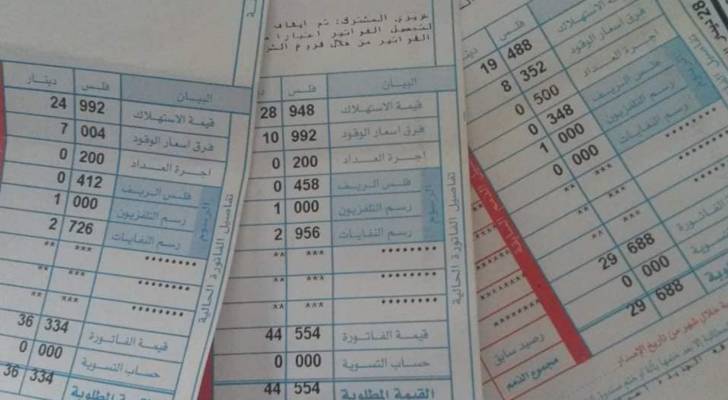 قيمة الاستهلاك 488 19
فرق اسعار الوقود 352 8
اجرة العداد 500 0
فلس الريف 348 0
رسم التلفزيون 000 1
رسم النفايات 000 0
688 29
000 0
688 29
رصيد سابق
مجموع الذمم
عزيزي المشترك: تم ايقاف
لتحصيل الفواتير اعتبارا
الفواتير من خلال فروع
البيان فلس دينار
قيمة الاستهلاك 948 28
فرق اسعار الوقود 992 10
اجرة العداد 200 0
الرسوم
فلس الريف 458 0
رسم التلفزيون 000 1
رسم النفايات 956 2
******** *** **
******** *** **
******** *** **
قيمة الفاتورة 554 44
حساب التسوية 000 0
القيمة المطلوبة 554 44
تفاصيل الفاتورة الحالية
البيان فلس دينار
قيمة الاستهلاك 992 24
فرق اسعار الوقود 004 7
اجرة العداد 200 0
الرسوم
فلس الريف 412 0
رسم التلفزيون 000 1
رسم النفايات 726 2
******** *** **
******** *** **
******** *** **
قيمة الفاتورة 334 36
حساب التسوية 000 0
القيمة المطلوبة 334 36
تفاصيل الفاتورة الحالية